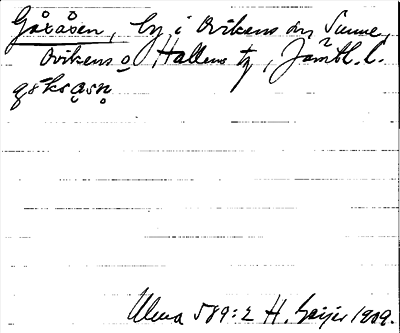 Gåxåsen, by i Ovikens och Sunne,
Ovikens o Hallens tg, Jämtl. l.
Ulma 589:2 H. Geijer 1909.